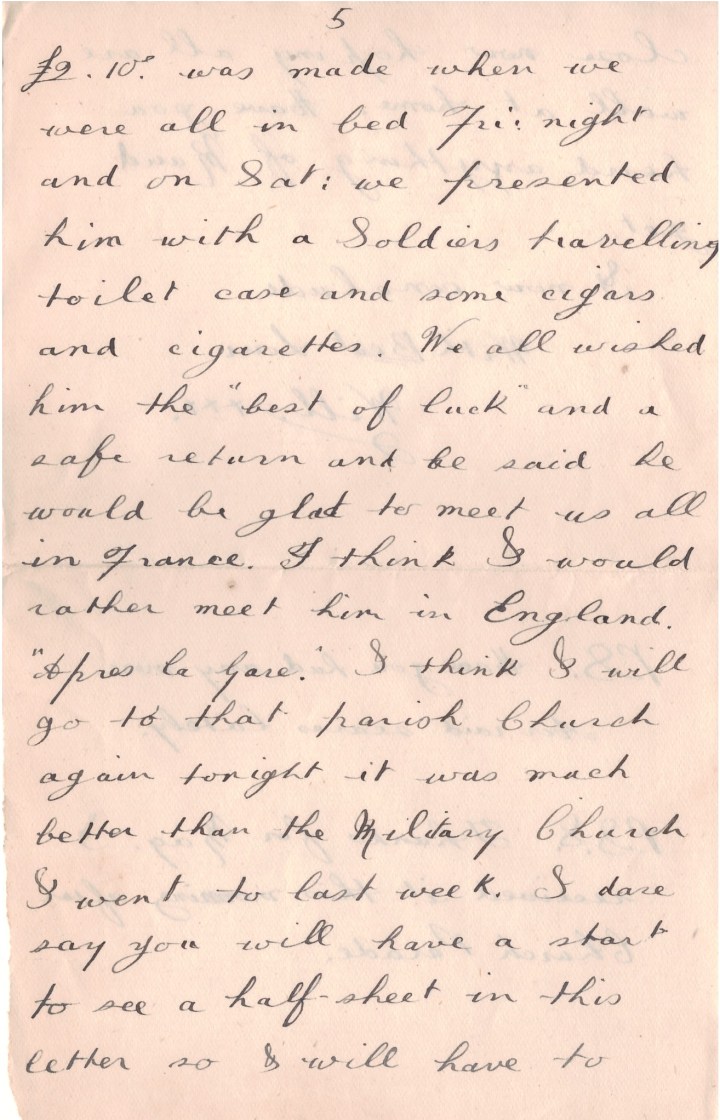 5
£2. 10s. was made when we
were all in bed Fri: night
and on Sat: we presented
him with a Soldiers travelling
toilet case and some cigars
and cigarettes. We all wished
him the "best of luck" and a
safe return and he said he
would be glad to meet us all
in France. I think I would
rather meet him in England.
"Apres la Gare." I think I will
go to that parish Church
again tonight it was much
better than the Military Church
I went to last week. I dare
say you will have a start
to see a half-sheet in this
letter so I will have to